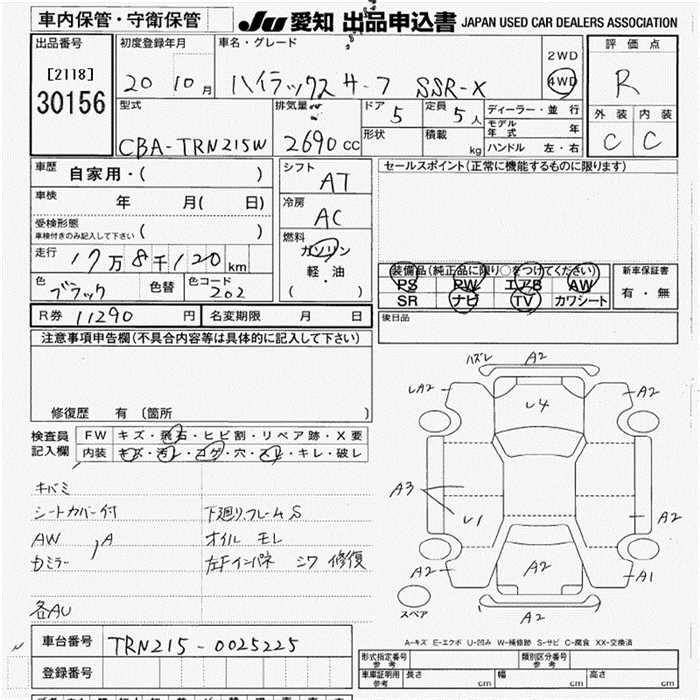 車内保管・守衛保管 JU 愛知 出品申込書 JAPAN USED CAR DEALERS ASSOCIATION
出品番号 初度登録年月 車名・グレード 評価点
[2118] 2WD
30156 20 10月 ハイラックス サーフ SSR-X 4WD R
型式 排気量 ドア 5 定員 5人 ディーラー・並行 外装 内装
CBA-TRN215W 2690CC 形状 積載 kg モデル年式 年 C C
ハンドル 左・右
車歴 自家用・( ) シフト AT セールスポイント(正常に機能するものに限ります)
車検 年 月( 日) 冷房 AC
受検形態
車検付きのみ記入して下さい ( ) 燃料
走行 17万8千120km ガソリン 装備品(純正品に限り○をつけてください) 新車保証書
色 ブラック 色替 色コード 202 軽・油 PS PW エアB AW 有・無
( ・ ) SR ナビ TV カワシート
R券 11290 円 名変期限 月 日 後日品
注意事項申告欄(不具合内容等は具体的に記入して下さい)
修復歴 有 (箇所 )
検査員記入欄 FW キズ・飛石・ヒビ割・リペア跡・X要
内装 キズ・汚レ・コゲ・穴・スレ・キレ・破レ
キバミ
シートカバー付 下廻リ,フレームS
AW , A オイル モレ
Dミラー 左Fインパネ シワ 修復
各AU
車台番号 TRN215-0025225
登録番号
ハズレ A2
LA2 A2
レ4
A3 レ1 A2
A2 A2 A1
スペア A2
A-キズ E-エクボ U-凹み W-補修跡 S-サビ C-腐食 XX-交換済
形式指定番号 参考 類別区分番号 参考
車庫証明用 参考 長さ cm 幅 cm 高さ cm